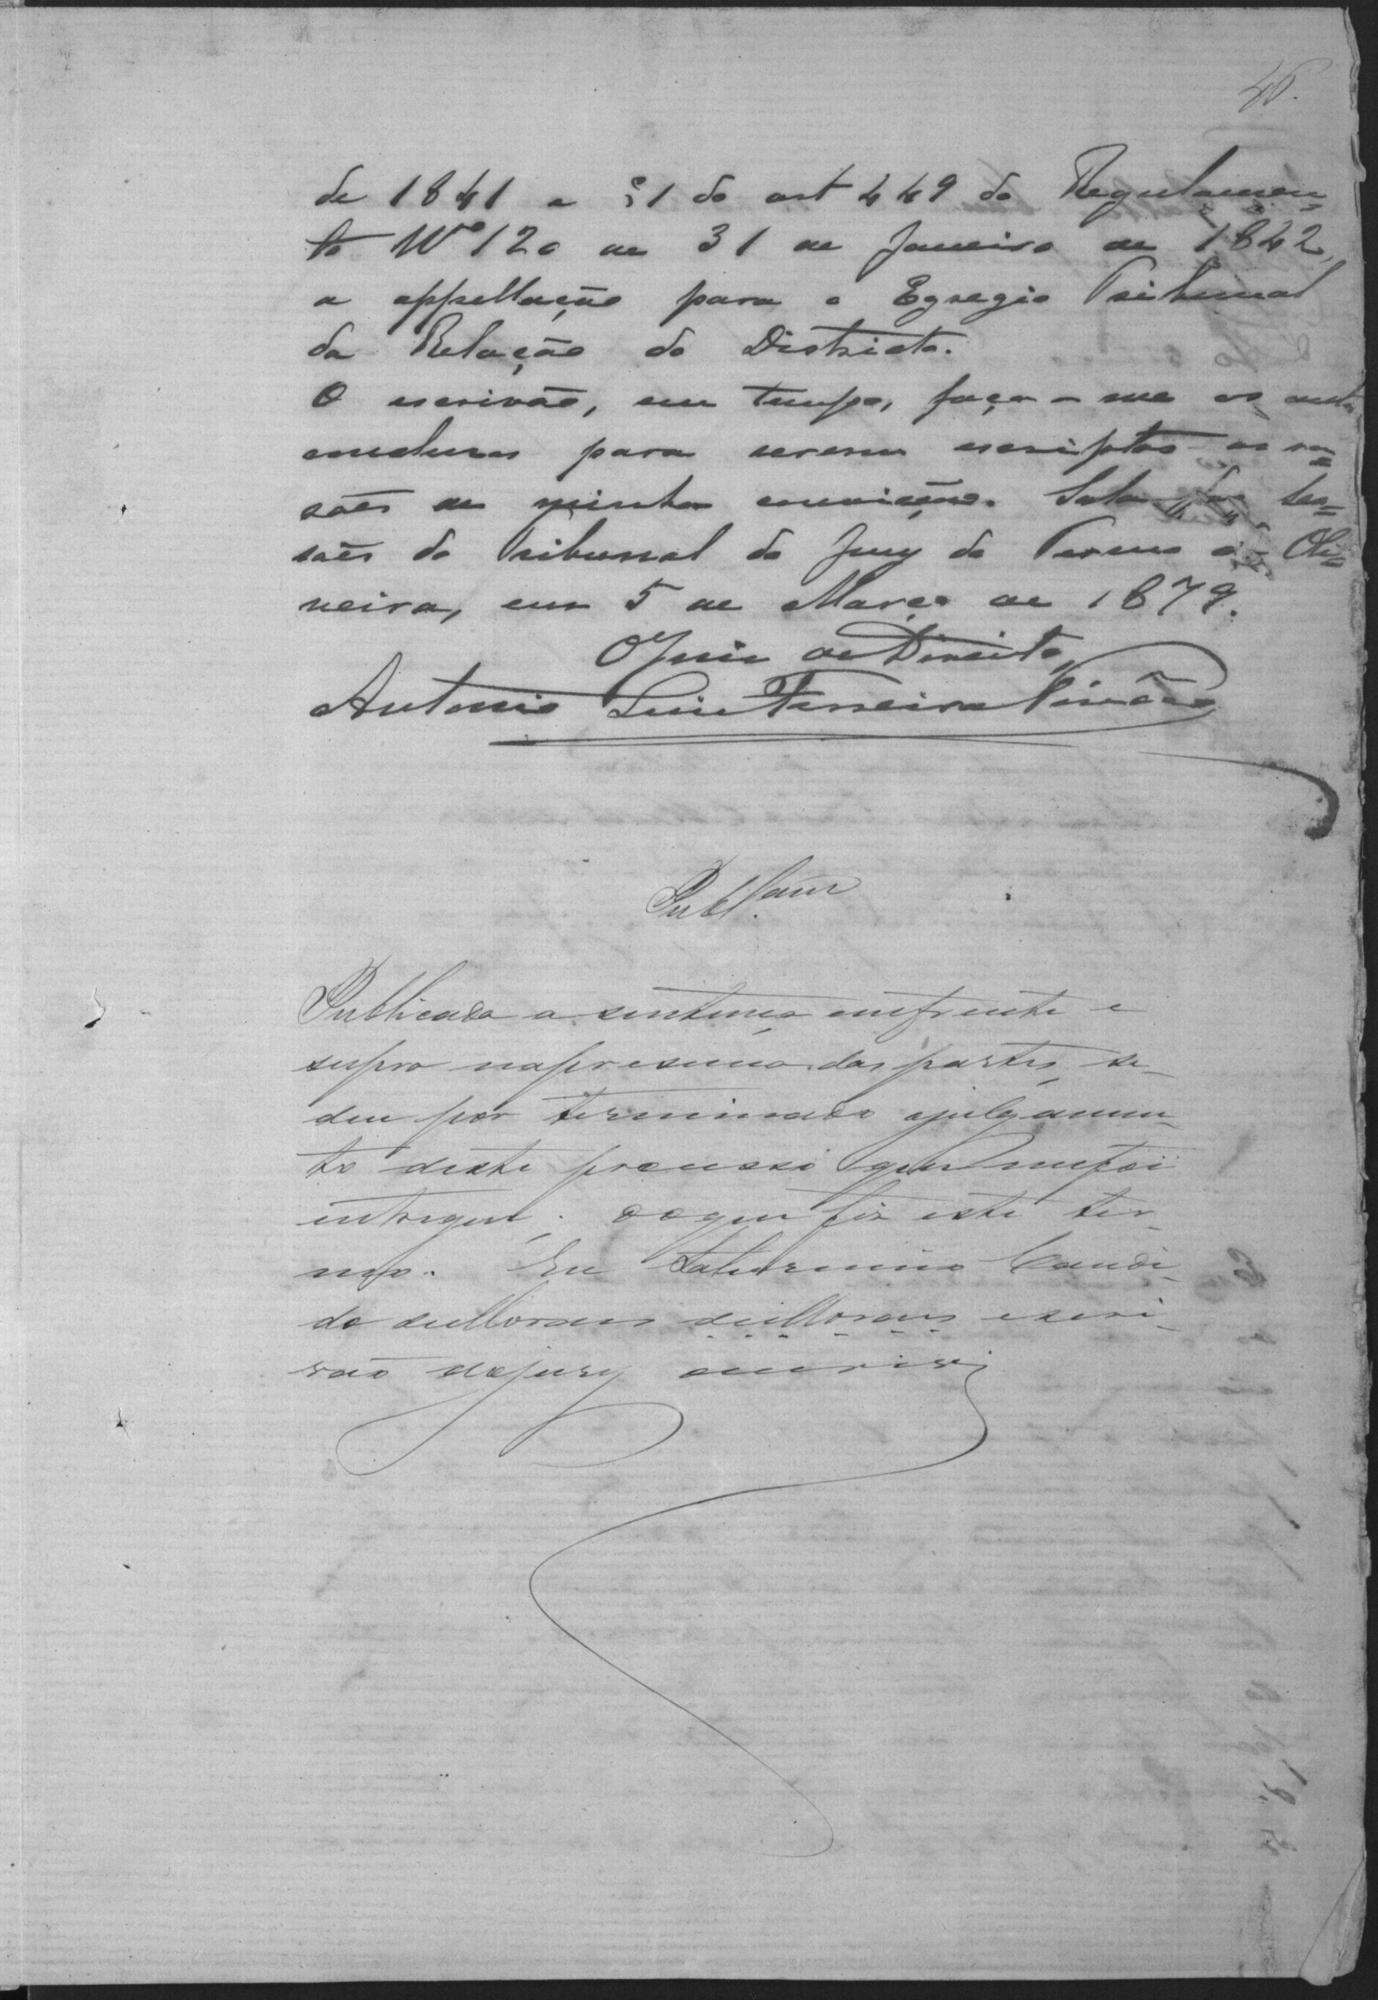 46.
de 1841 e § 1 do art 449 do Regulamen=
to Nº 120 de 31 de Janeiro de 1842,
a appellação para o Egregio Tribunal
da Relação do Districto.
O escrivão, em tempo, faça-me os autos
conclusos para serem escriptas as ra=
sões de minha convicção. Sala das Ses=
sões do Tribunal do Jury do Termo de Oli=
veira, em 5 de Março de 1879.
O Juiz de Direito,
Antonio Luiz Ferreira Tinôco
Publ.cam
Publicada a sentença emfrente e
supra na presença das partes, se
deu por terminado o julgamen-
to deste processo que me foi
entregue; do que fiz este ter-
mo. Eu Saturnino Candi-
do de Moraes de Moraes escri-
vão do jury escrivi